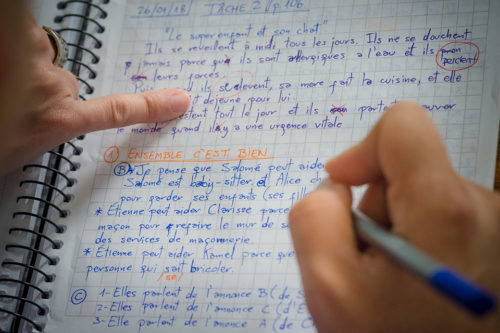 26/04/18 TÂCHE 2 // p. 106
"Le superenfant et son chat"
Ils se réveillent à midi tous les jours. Ils ne se douchent
jamais parce qu' ils sont allergiques a l'eau et ils
leurs forces.
ils se lèvent, sa mère fait la cuisine, et elle
déjeune pour lui.
tout le jour et ils
le monde quand il y a une urgence vitale
1 ENSEMBLE C'EST BIEN
B * Je pense que Salomé peut aider
Salomé est baby-sitter et Alice
pour garder ses enfants (ses
* Étienne peut aider Clarisse parce
maçon pour refaire le mur de s
des services de maçonnerie.
* Étienne peut aider Kamel parce que
personne qui sait bricoler.
/se/
C 1- Elles parlent de l'annonce B (de S
2- Elles parlent de l'annonce C (d'E
3- Elle parlent de l'annonce A (de C